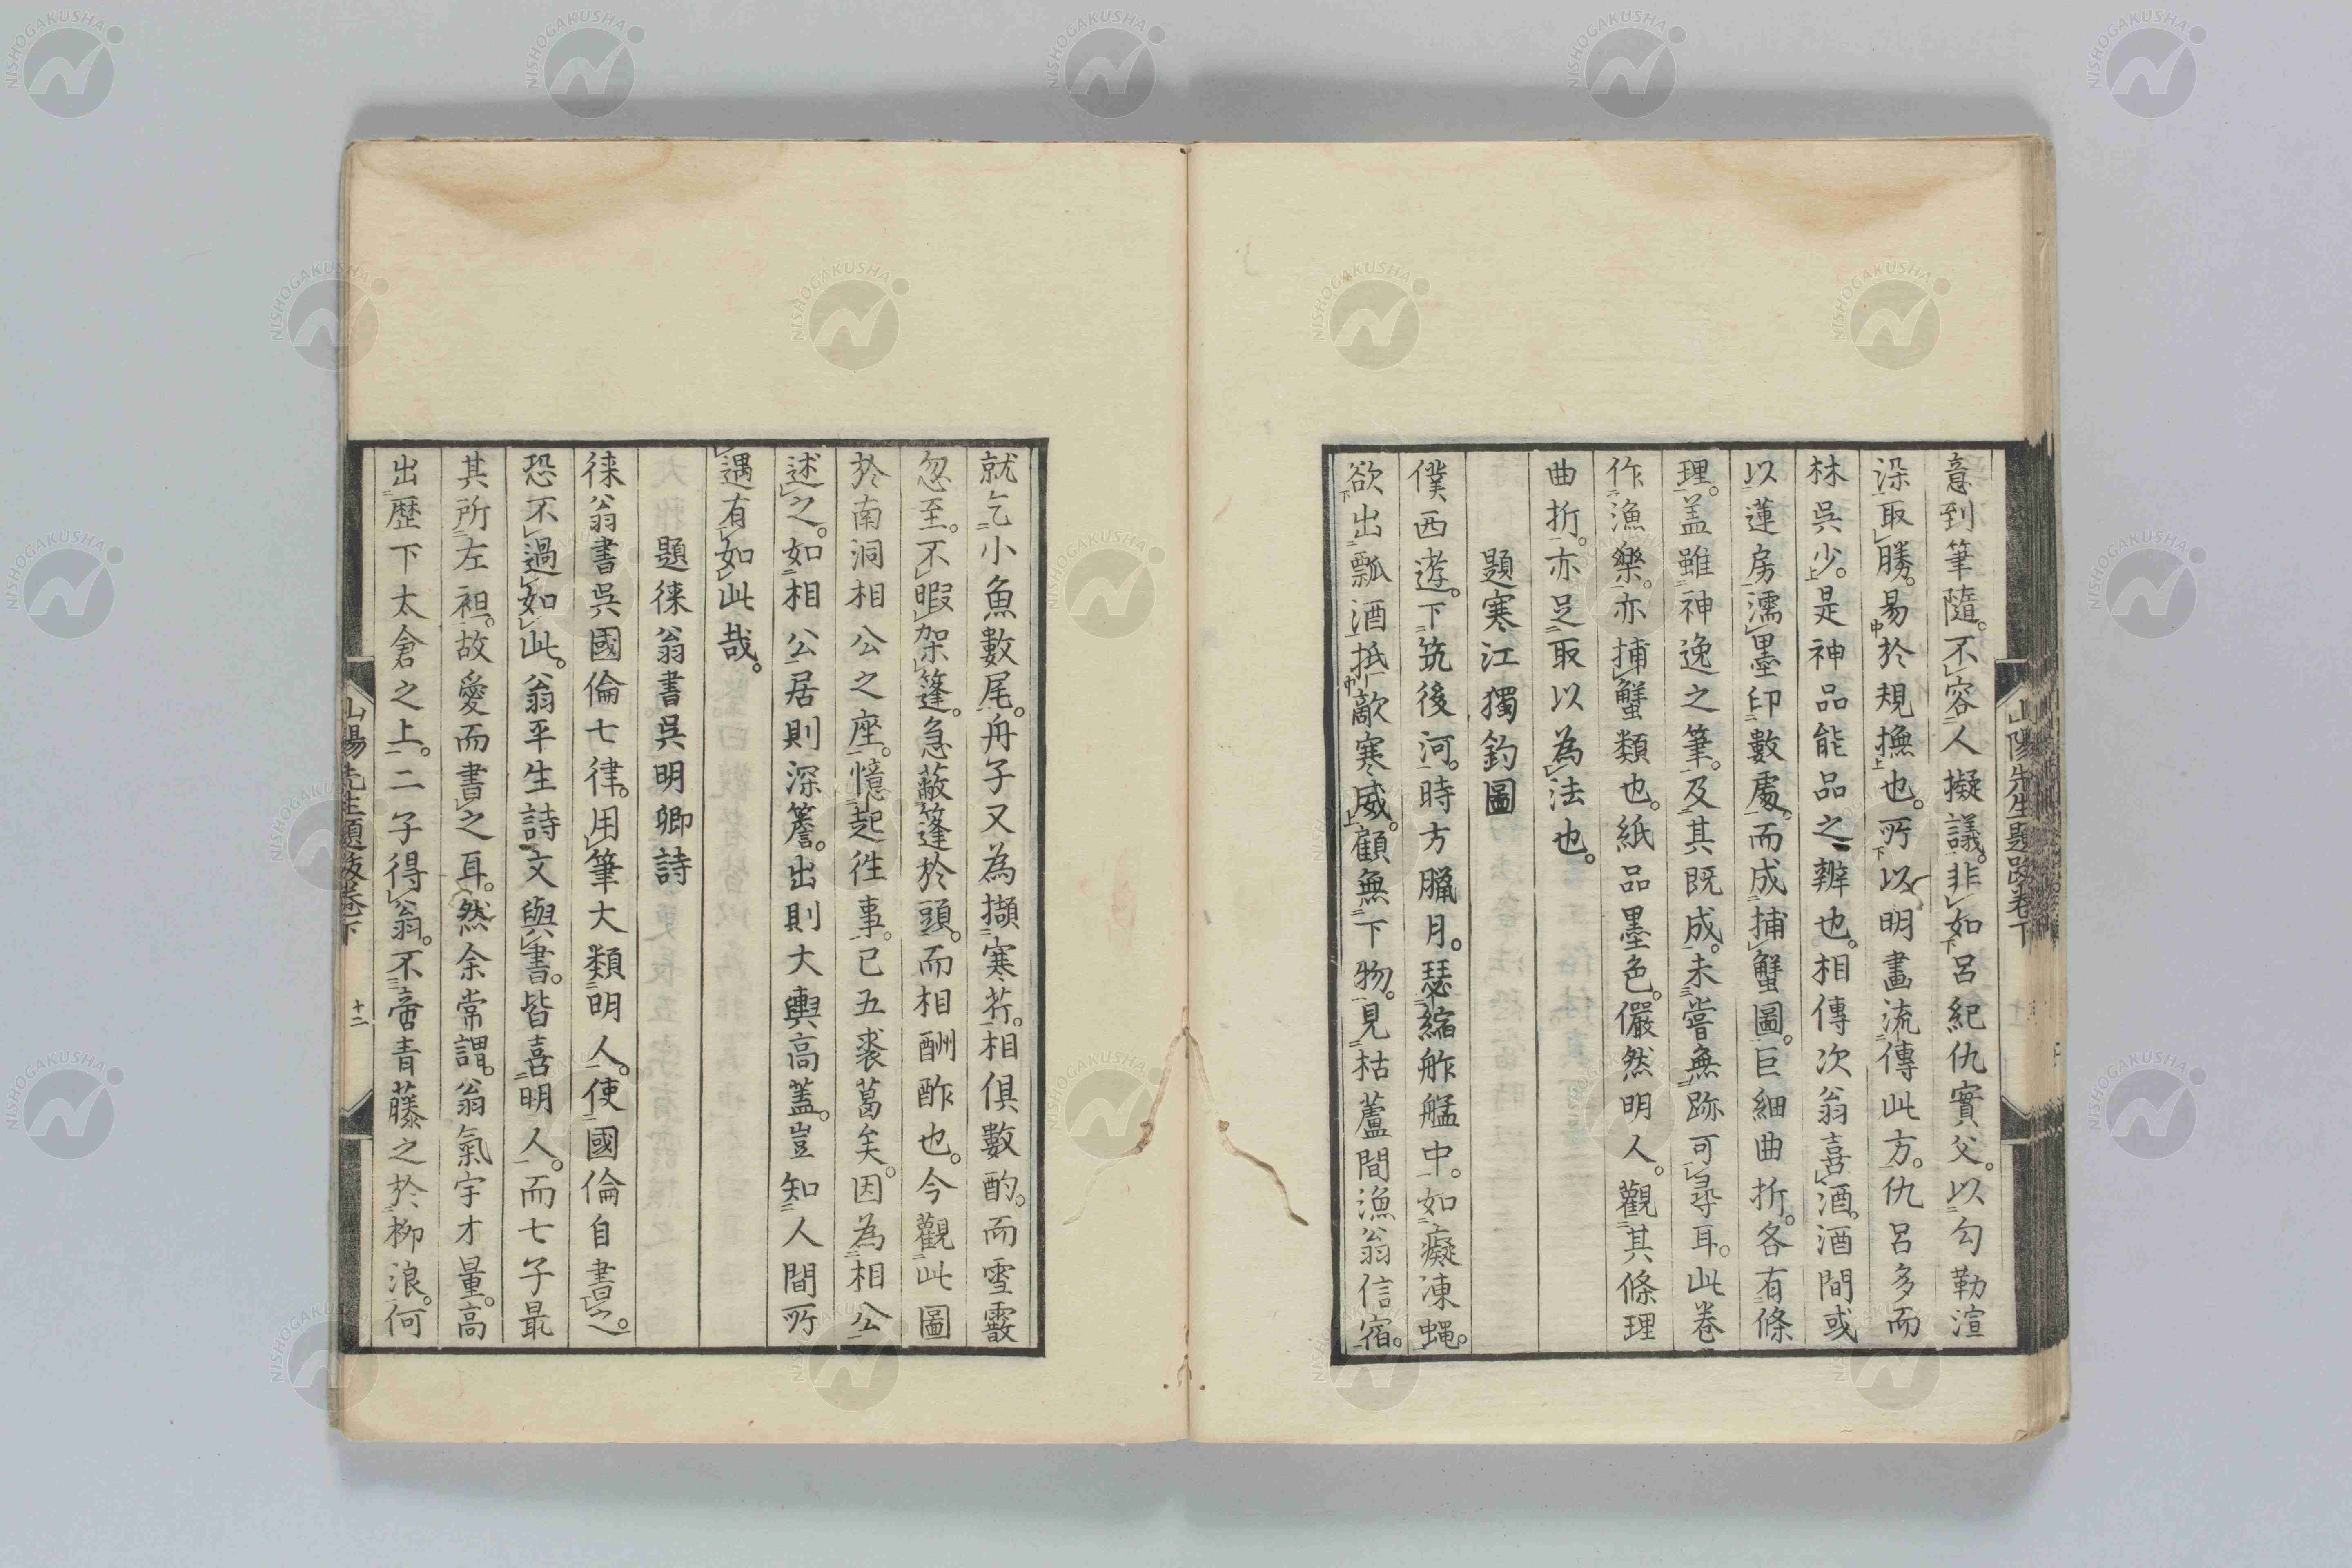 意到筆隨。不容人擬議。非如呂紀仇實父。以勾勒渲
深取勝。易於規撫也。所以明畫流傳此方。仇呂多而
林吳少。是神品能品之辨也。相傳次翁喜酒。酒間或
以蓮房濡墨印數處。而成捕蟹圖。巨細曲折。各有條
理。盖雖神逸之筆。及其既成。未嘗無跡可尋耳。此卷
作漁樂。亦捕蟹類也。紙品墨色。儼然明人。觀其條理
曲折。亦足取以為法也。
題寒江獨釣圖
僕西遊。下筑後河。時方臘月。瑟縮舴艋中。如癡凍蝿。
欲出瓢酒抵敵寒威。顧無下物。見枯蘆間漁翁信宿。
山陽先生題跋卷下
就乞小魚數尾。舟子又為擷寒芹。相倶數酌。而雪霰
忽至。不暇架篷。急蔽篷於頭。而相酬酢也。今觀此圖
於南洞相公之座。憶起徃事。已五裘葛矣。因為相公
述之。如相公居則深簷。出則大輿高蓋。豈知人間所
遇有如此哉。
題徠翁書吳明卿詩
徠翁書吳國倫七律。用筆大類明人。使國倫自書之。
恐不過如此。翁平生詩文與書。皆喜明人。而七子最
其所左袒。故愛而書之耳。然余常謂。翁氣宇才量。高
出歷下太倉之上。二子得翁。不啻青藤之於柳浪。何
山陽先生題跋卷下 十二
NISHOGAKUSHA